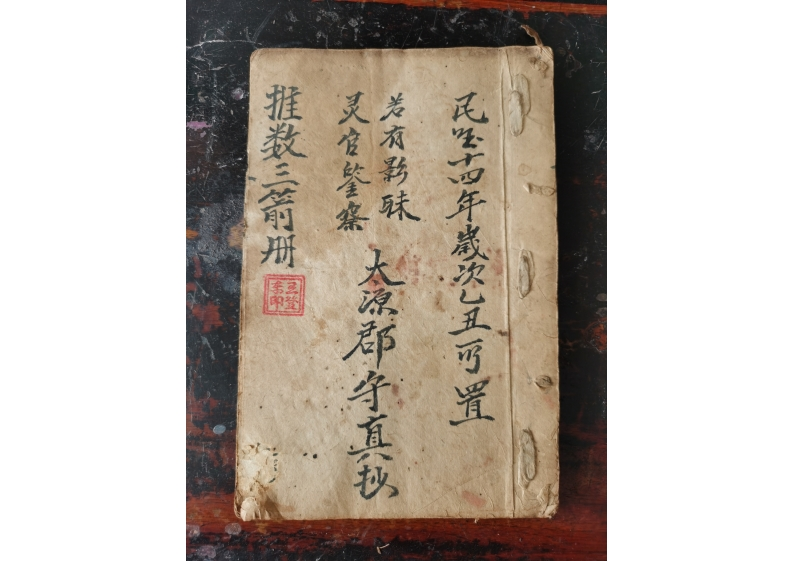 民国十四年歲次乙丑所置
若有影昧
灵官鑒察
太源郡守真抄
推数三箭册